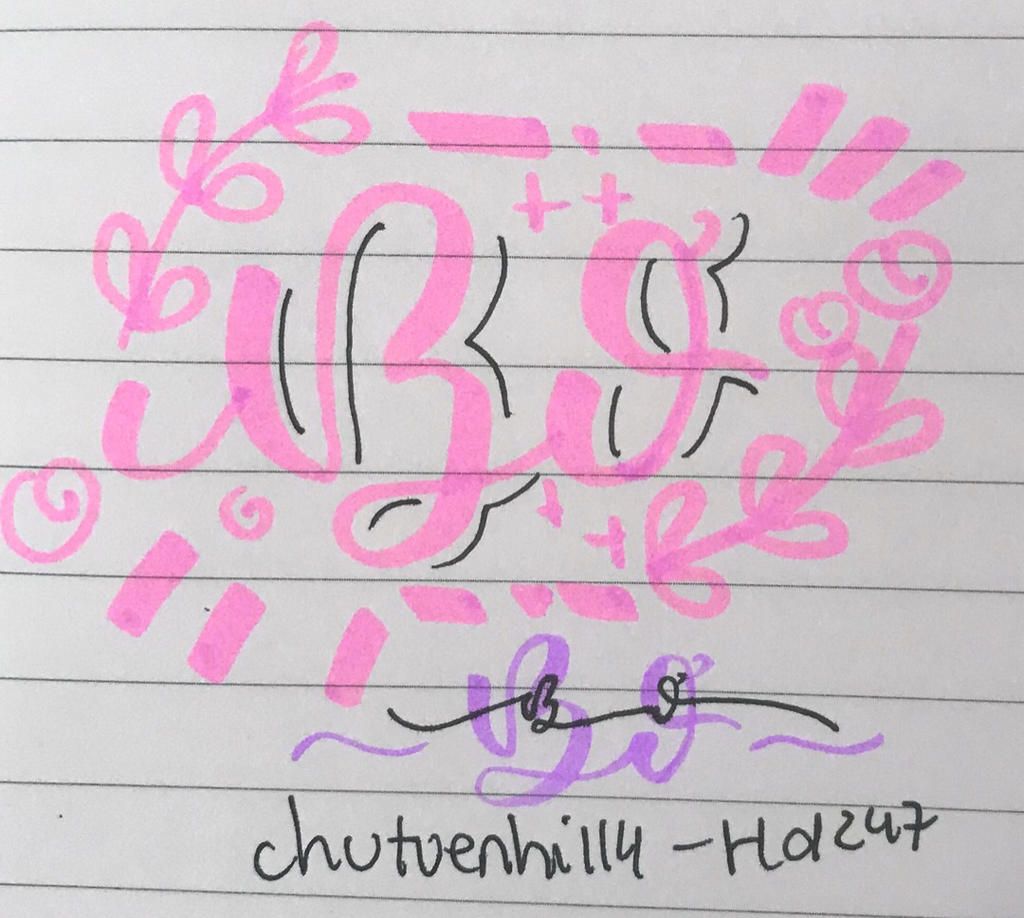 Bơ
Bơ
B ơ
chutuenhi114 - Hd247